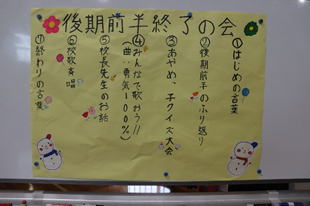 後期前半終了の会
①はじめの言葉
②後期前半のふり返り
③あやめ、子クイズ大会
④みんなで歌おう!!
(曲:勇気100%)
⑤校長先生のお話
⑥校歌斉唱
⑦終わりの言葉